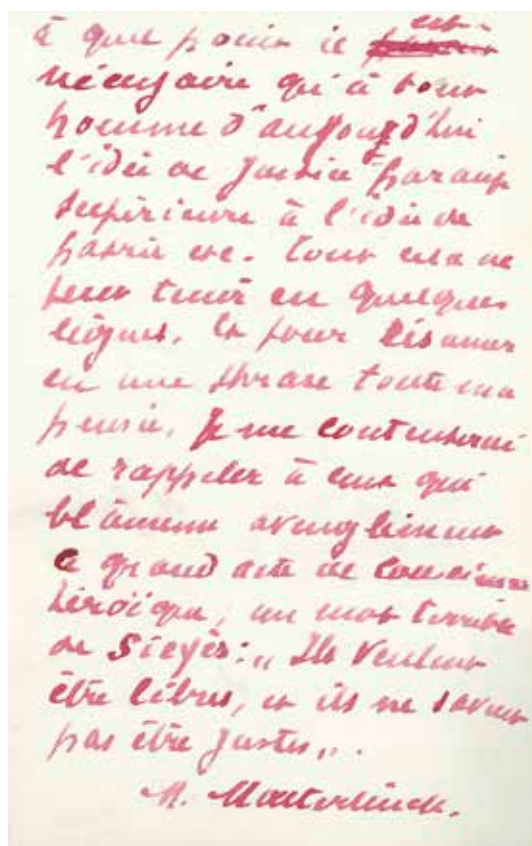 à quel point il est
nécessaire qu'à tout
homme d'aujourd'hui
l'idée de justice paraisse
supérieure à l'idée de
patrie etc. tout cela ne
peut tenir en quelques
lignes. Et pour résumer
en une phrase toute ma
pensée, je me contenterai
de rappeler à ceux qui
blâment aveuglément
ce grand acte de conscience
héroïque, un mot terrible
de Sieyès: „ Ils veulent
être libres, et ils ne savent
pas être justes „.
M. Maeterlinck.